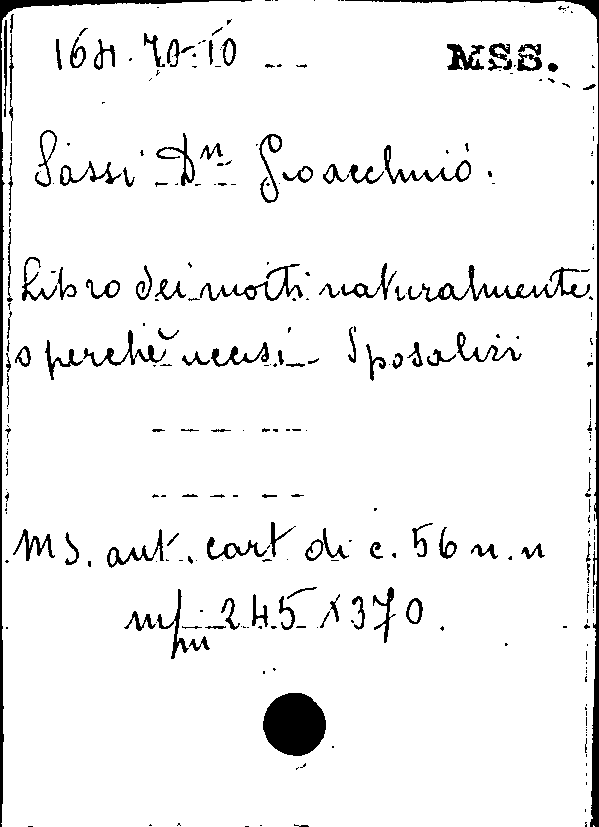 164.70.10 MSS.
Sassi Dn Gioacchino.
Libro dei morti naturalmente
o perchè uccisi Sposalizi
MS. aut. cart di c. 56 n.n
m/m 245 x 370.